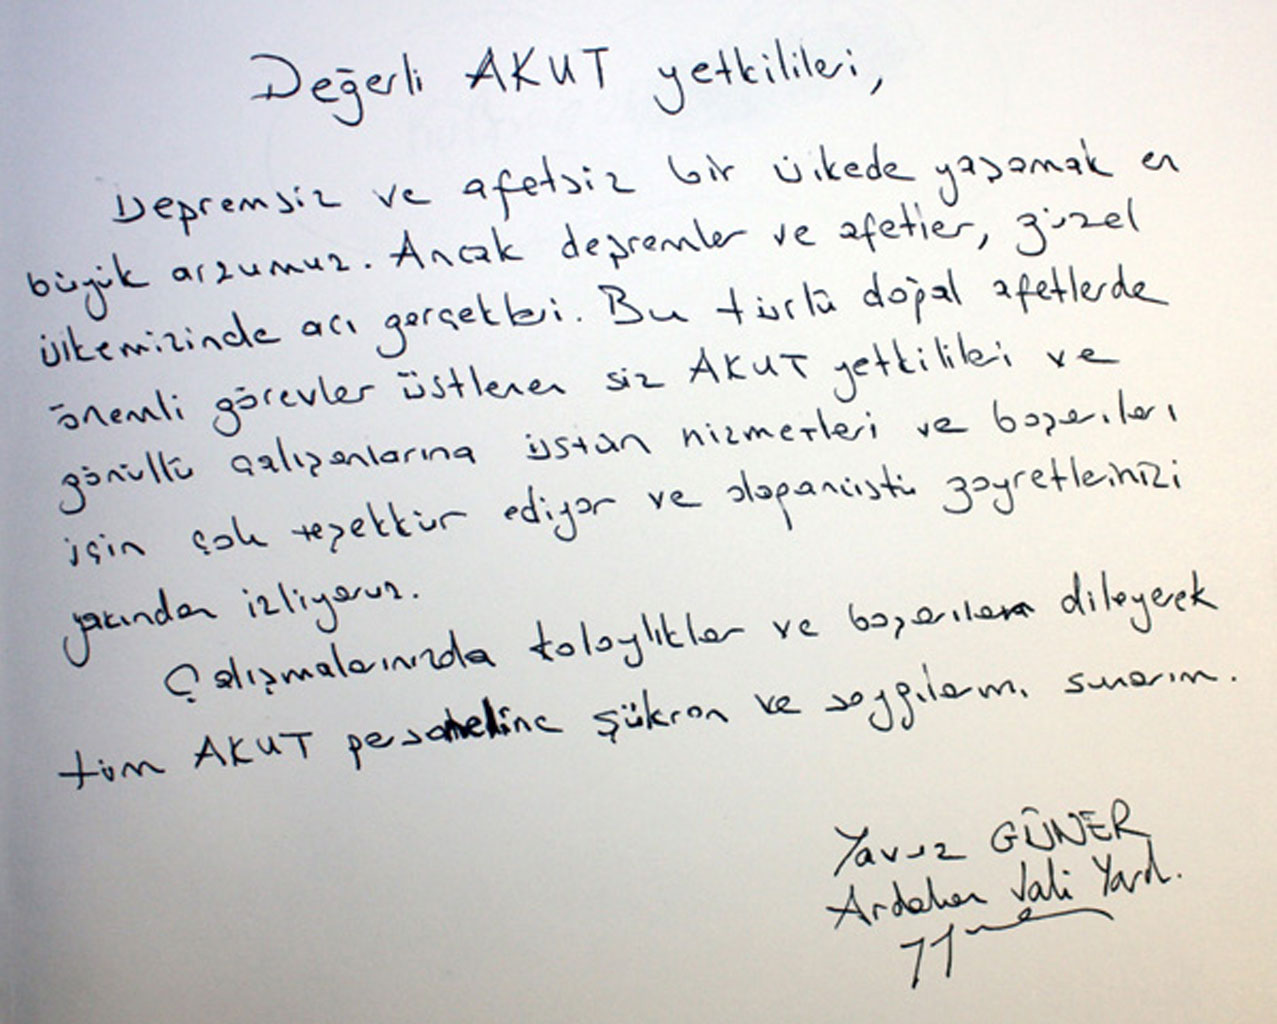 Değerli AKUT yetkilileri,
Depremsiz ve afetsiz bir ülkede yaşamak en
büyük arzumuz. Ancak depremler ve afetler, güzel
ülkemizinde acı gerçekleri. Bu türlü doğal afetlerde
önemli görevler üstlenen siz AKUT yetkilileri ve
gönüllü çalışanlarına üstün hizmetleri ve başarıları
için çok teşekkür ediyor ve olağanüstü gayretlerinizi
yakından izliyoruz.
Çalışmalarınızda kolaylıklar ve başarılar dileyerek
tüm AKUT personeline şükran ve saygılarımı sunarım.
Yavuz GÜNER
Ardahan Vali Yard.